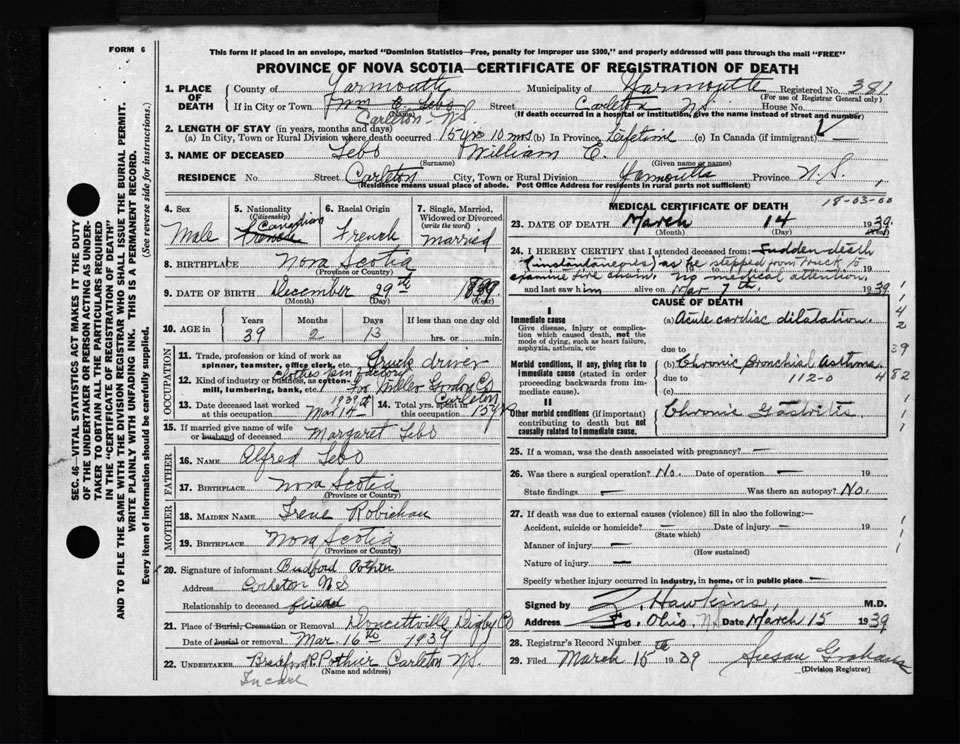 FORM 6
This form if placed in an envelope, marked "Dominion Statistics—Free, penalty for improper use $300," and properly addressed will pass through the mail "FREE"
PROVINCE OF NOVA SCOTIA—CERTIFICATE OF REGISTRATION OF DEATH
1. PLACE OF DEATH County of Yarmouth Municipality of Yarmouth Registered No. 381
(For use of Registrar General only)
If in City or Town Wm E. Lebo Street Carleton NS House No.
(Name) (If death occurred in a hospital or institution, give the name instead of street and number)
Carleton N.S.
2. LENGTH OF STAY (in years, months and days)
(a) In City, Town or Rural Division where death occurred 15 yrs 10 mos (b) In Province, Lifetime (c) In Canada (if immigrant)
3. NAME OF DECEASED Lebo William E.
(Surname) (Given name or names)
RESIDENCE No. Street Carleton City, Town or Rural Division Yarmouth Province N.S.
(Residence means usual place of abode. Post Office Address for residents in rural parts not sufficient)
4. Sex Male
5. Nationality (Citizenship) French Canadian
6. Racial Origin French
7. Single, Married, Widowed or Divorced (write the word) married
8. BIRTHPLACE Nova Scotia
(Province or Country)
9. DATE OF BIRTH December 29th 1899
(Month) (Day) (Year)
10. AGE in Years Months Days If less than one day old
39 2 13 hrs. or min.
OCCUPATION
11. Trade, profession or kind of work as spinner, teamster, office clerk, etc. Truck driver
clothes pin factory
12. Kind of industry or business, as cotton-mill, lumbering, bank, etc. For Miller Gordon Co Carleton
13. Date deceased last worked at this occupation Mar 14 1939
14. Total yrs. spent in this occupation 15 yr
15. If married give name of wife or husband of deceased Margaret Lebo
FATHER
16. NAME Alfred Lebo
17. BIRTHPLACE Nova Scotia
(Province or Country)
MOTHER
18. MAIDEN NAME Irene Robichau
19. BIRTHPLACE Nova Scotia
(Province or Country)
20. Signature of informant
Address Carleton N S
Relationship to deceased friend
21. Place of Burial, Cremation or Removal Doucettville Digby Co
Date of burial or removal Mar. 16th 1939
22. UNDERTAKER Pothier Carleton N.S.
(Name and address)
MEDICAL CERTIFICATE OF DEATH 18-03-00
23. DATE OF DEATH March 14 1939
(Month) (Day) (Year)
24. I HEREBY CERTIFY that I attended deceased from Sudden death
(instantaneous) as he stepped from truck to 19
examine tire chain. no medical attention 19
and last saw him alive on Mar 7th. 1939
CAUSE OF DEATH
I
Immediate cause
Give disease, injury or complication which caused death, not the mode of dying, such as heart failure, asphyxia, asthenia, etc
(a) Acute cardiac dilatation.
due to
Morbid conditions, if any, giving rise to immediate cause (stated in order proceeding backwards from immediate cause).
(b) Chronic Bronchial asthma
due to 112-0
(c)
II
Other morbid conditions (if important) contributing to death but not causally related to immediate cause.
Chronic Gastritis
25. If a woman, was the death associated with pregnancy? —
26. Was there a surgical operation? No. Date of operation — 19
State findings — Was there an autopsy? No.
27. If death was due to external causes (violence) fill in also the following:—
Accident, suicide or homicide? — Date of injury — 19
(State which)
Manner of injury —
(How sustained)
Nature of injury —
Specify whether injury occurred in industry, in home, or in public place —
Signed by Z. Hawkins, M.D.
Address So. Ohio, N.S. Date March 15 1939
28. Registrar's Record Number
29. Filed March 15th 1939 Susan Graham
(Division Registrar)
SEC. 46—VITAL STATISTICS ACT MAKES IT THE DUTY
OF THE UNDERTAKER OR PERSON ACTING AS UNDER-
TAKER TO OBTAIN ALL THE PARTICULARS REQUIRED
IN THE "CERTIFICATE OF REGISTRATION OF DEATH"
AND TO FILE THE SAME WITH THE DIVISION REGISTRAR WHO SHALL ISSUE THE BURIAL PERMIT.
WRITE PLAINLY WITH UNFADING INK. THIS IS A PERMANENT RECORD.
Every item of information should be carefully supplied. (See reverse side for instructions.)